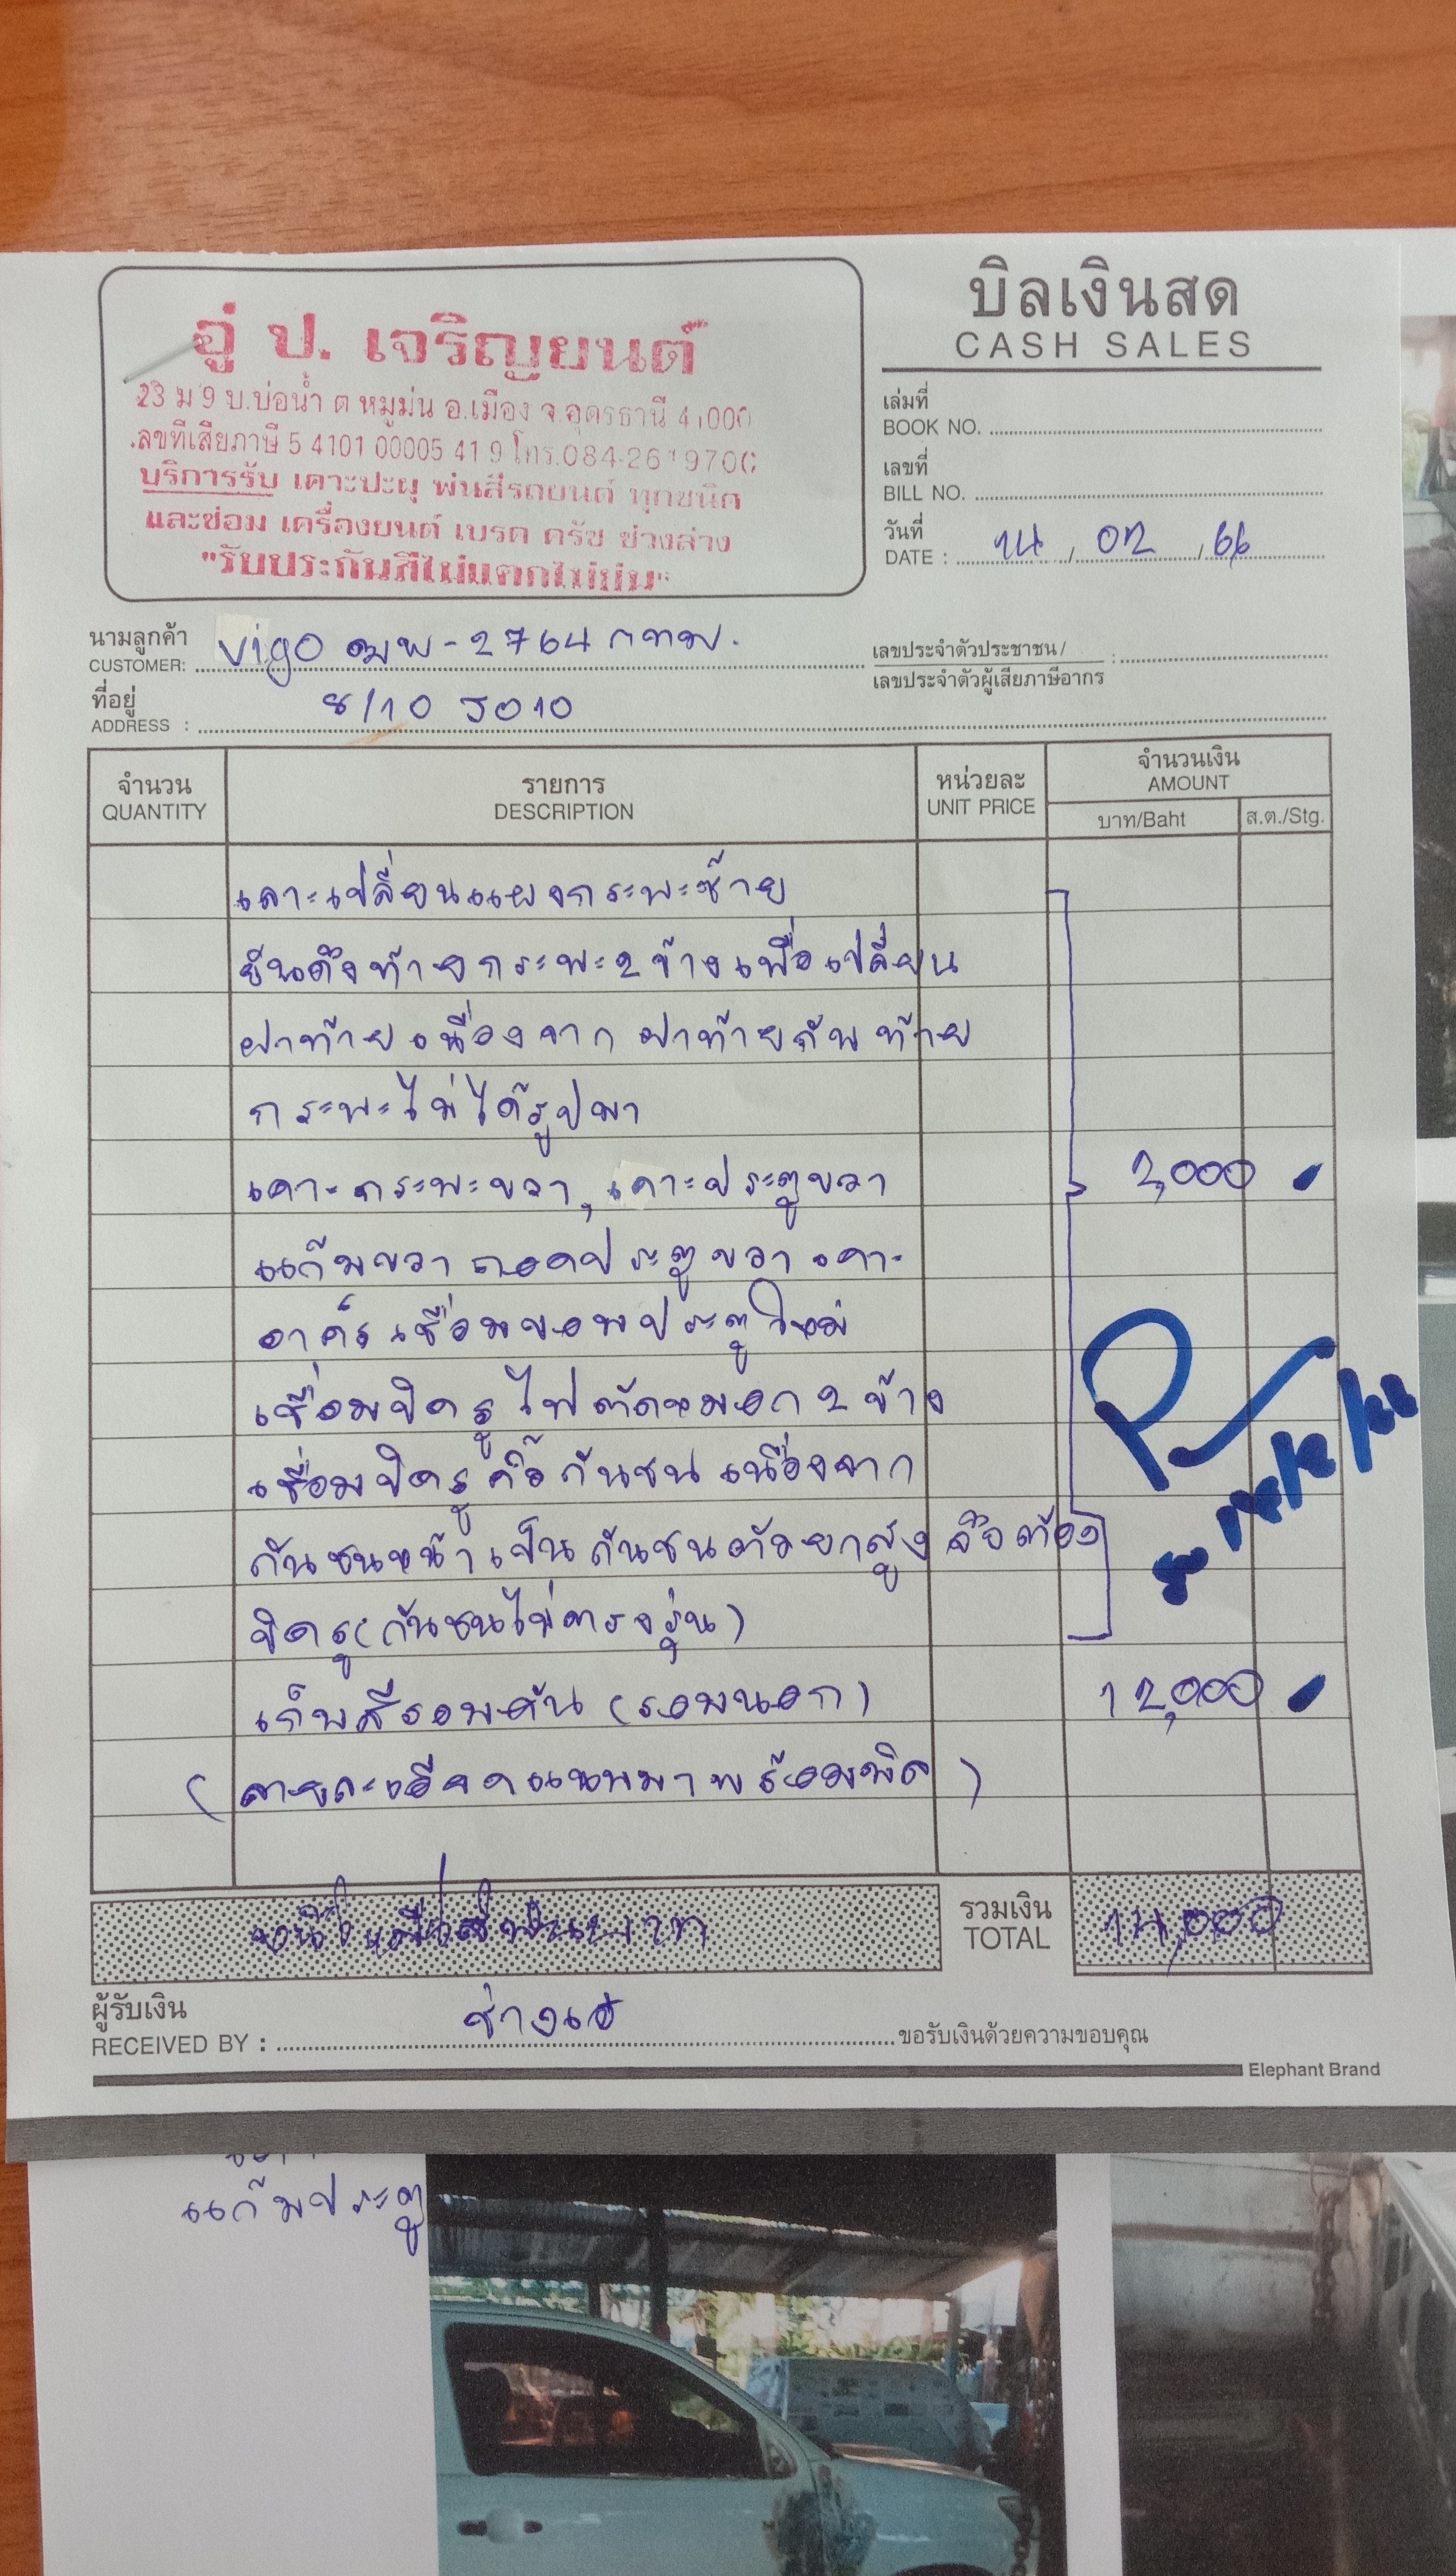 อู่ ป. เจริญยนต์
23 ม 9 บ.บ่อน้ำ ต หมูม่น อ.เมือง จ.อุดรธานี 41000
เลขที่เสียภาษี 5 4101 00005 41 9 โทร.084-2619700
บริการรับ เคาะปะผุ พ่นสีรถยนต์ ทุกชนิด
และซ่อม เครื่องยนต์ เบรค ครัช ช่วงล่าง
"รับประกันสีไม่แตกไม่ย่น"
บิลเงินสด
CASH SALES
เล่มที่
BOOK NO.
เลขที่
BILL NO.
วันที่
DATE : 14 / 02 / 66
นามลูกค้า
CUSTOMER: Vigo ฒพ-2764 กทม.
เลขประจำตัวประชาชน /
เลขประจำตัวผู้เสียภาษีอากร :
ที่อยู่
ADDRESS : 8/10 J010
จำนวน
QUANTITY
รายการ
DESCRIPTION
หน่วยละ
UNIT PRICE
จำนวนเงิน
AMOUNT
บาท/Baht
ส.ต./Stg.
เคาะเปลี่ยนแผงกระพะซ้าย
ยันดึงท้ายกระพะ2ข้างเพื่อเปลี่ยน
ฝาท้าย เนื่องจาก ฝาท้ายกับท้าย
กระพะไม่ได้รูปมา
เคาะกระพะขวา, เคาะประตูขวา 2,000
แก้มขวา ถอดประตูขวา เคาะ
เชื่อมขอบประตูใหม่
เชื่อมปิดรู ไฟตัดหมอก 2 ข้าง
เชื่อมปิดรูคิ้วกันชน เนื่องจาก
กันชนหน้าเป็นกันชนตัวยกสูง จึงต้อง
ปิดรู(กันชนไม่ตรงรุ่น)
เก็บสีรอบคัน (รอบนอก) 12,000
(รายละเอียดแนบมาพร้อมบิล)
หนึ่งหมื่นสี่พันบาท
รวมเงิน
TOTAL 14,000
ผู้รับเงิน
RECEIVED BY : ช่างเอ๋ ขอรับเงินด้วยความขอบคุณ
Elephant Brand
แก้มประตู